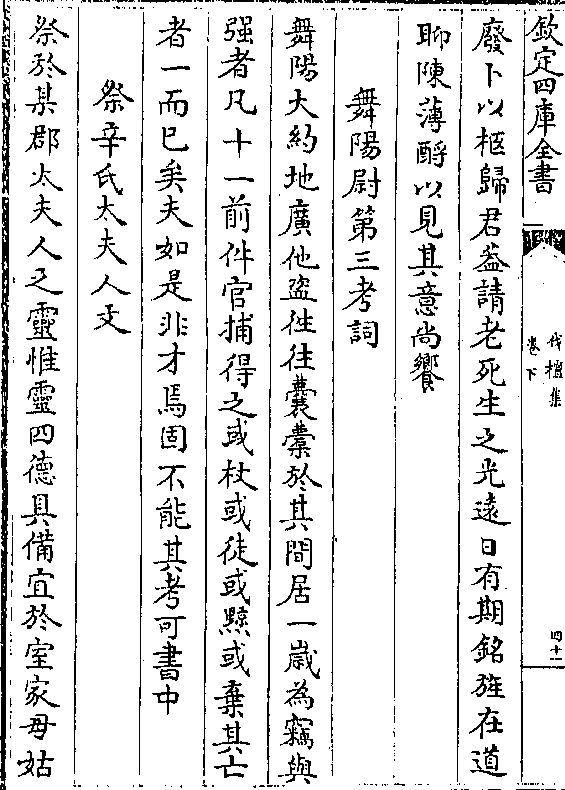 欽定四庫全書
伐檀集
卷下
四十一
廢卜以柩歸君益請老死生之光遠日有期銘旌在道
聊陳薄酹以見其意尚饗
舞陽尉第三考詞
舞陽大約地廣他盜往往囊橐於其間居一歳為竊與
强者凡十一前件官捕得之或杖或徒或黥或棄其亡
者一而已矣夫如是非才焉固不能其考可書中
祭辛氏太夫人文
祭於某郡太夫人之靈惟靈四德具備宜於室家毋姑